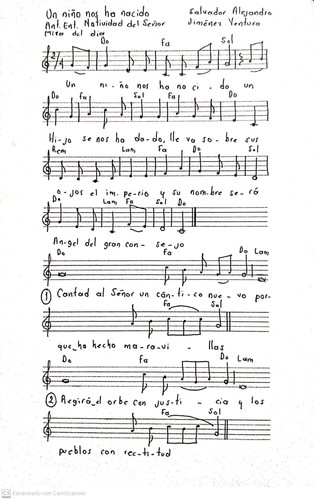 Un niño nos ha nacido
Salvador Alejandro
Ant. Ent. Natividad del Señor
Jiménez Ventura
Misa del día
Do Fa Sol Do
2/4
Un ni-ño nos ha na-ci-do un
Do Fa Sol Fa Do
Hi-jo se nos ha da-do, lle va so-bre sus
Rem Lam Fa Do Sol
o-jos el im-pe-rio y su nom-bre se-rá
Do Lam Fa Sol Do
Án-gel del gran con-se-jo
Do Fa Do Lam
1 Cantad al Señor un cán-ti-co nue-vo por-
Fa Sol
que ha hecho ma-ra-vi-llas
Do Fa Do Lam
2 Regirá el orbe con jus-ti-cia y los
Fa Sol
pueblos con rec-ti-tud
CS Escaneado con CamScanner